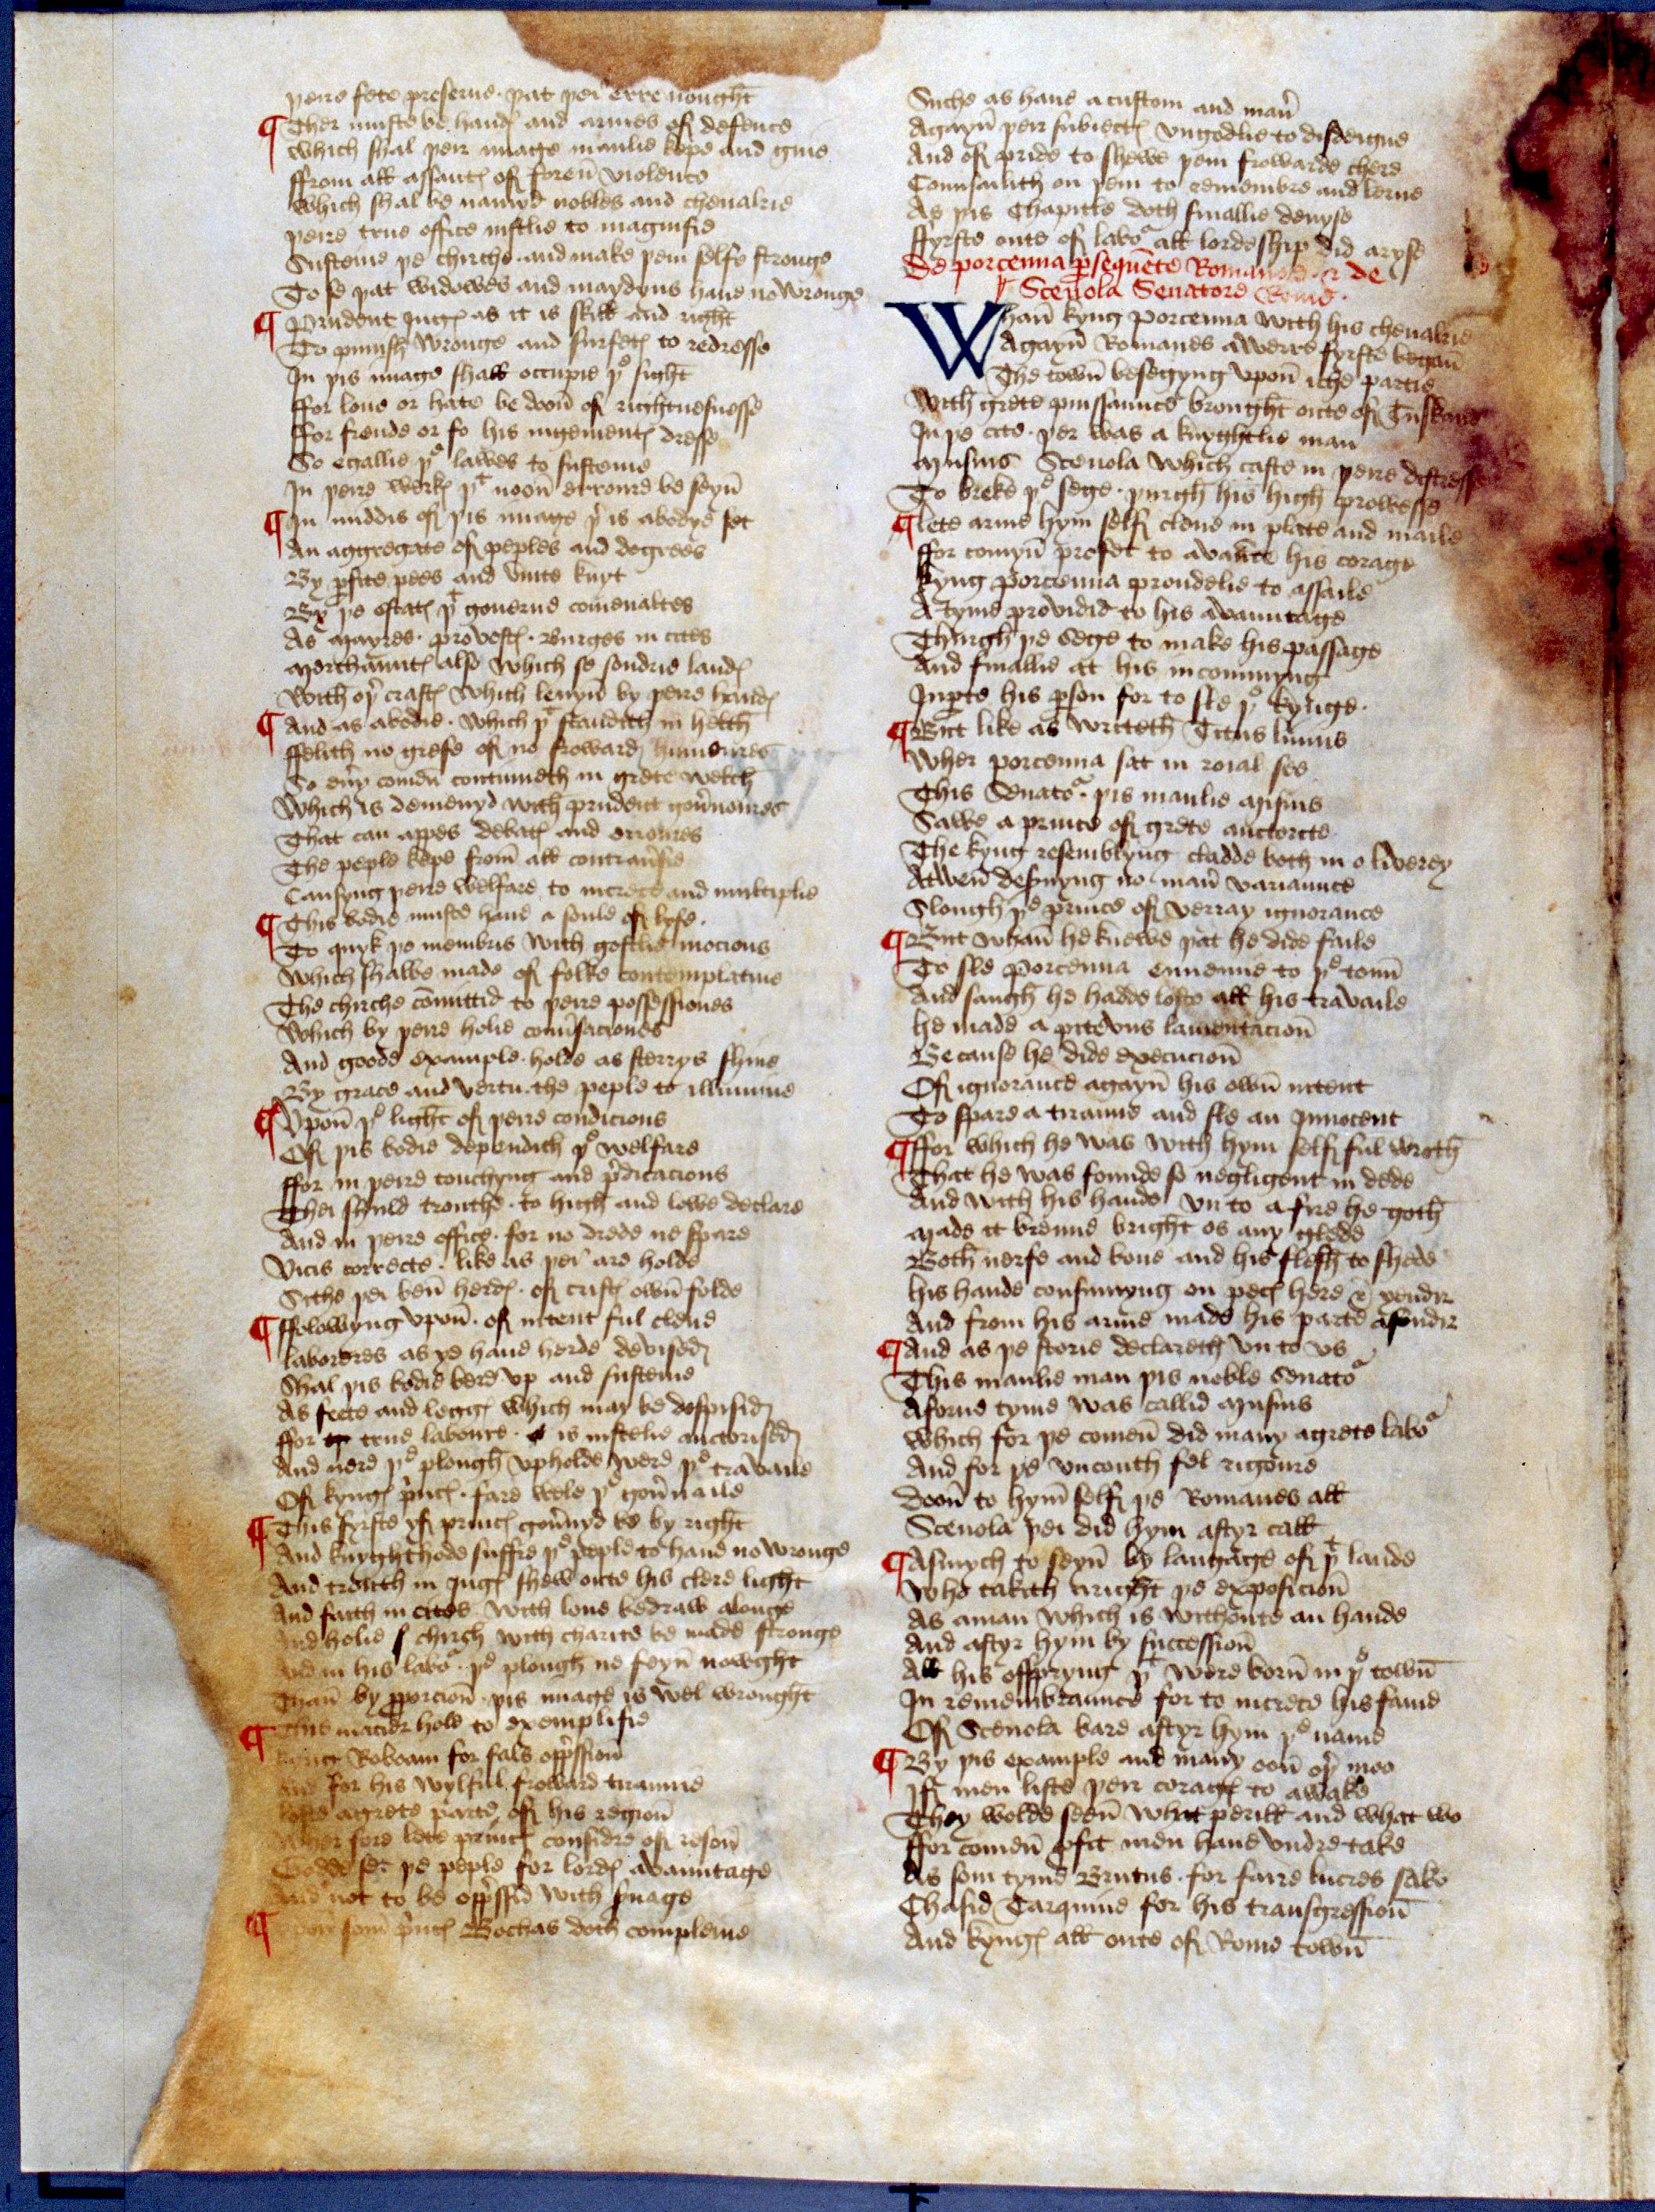 þeire fete preserue · þat þei erre nought
¶ Ther muste be handꝭ and armes of defence
Which shal þeir ymage manlie kepe and guie
ffrom all assautꝭ of foreñ violence
Which shal be namyd nobles and cheualrie
þeire true office iustlie to magnifie
Susteine þe chirche · and make þem selfe stronge
To se þat widowes and maydyns haue no wronge
¶ Prudent Jugꝭ as it is skill and right
To punysh wronge and surfetꝭ to redresse
In þis ymage shall occupie þe sight
ffor loue or hate be dooñ of rightuesnesse
ffor frende or fo his iugementꝭ dresse
So egallie þe lawes to susteine
In þeire werkꝭ þt nooñ erroure be seyñ
¶ In middis of þis ymage þͬ is abodye set
An aggregate of peples and degrees
By p̱fite pees and vnite knyt
By þe estatꝭ þt gouerne comenaltes
As Mayres · provostꝭ · Burges in cites
Merchauntꝭ also which se sondrie landꝭ
With oþͬ craftꝭ which leuyñ by þeire handꝭ
¶ And as abodie · which þt standith in helth
ffelith no grefe of no froward humoures
So eu̾y comeñ contynueth in grete welth
Which is demenyd with prudent gou̾noures
That can appes debatꝭ and erroures
The peple kepe from all contrau̾sie
Causyng þeire welfare to increce and multiplie
¶ This bodie muste haue a soule of lyfe ·
To quyk þe membris with gostlie mocions
Which shalbe made of folke contemplatiue
The chirche cōmittid to þeire possessiones
Which by þeire holie conu̾saciones
And goode example · holde as sterrys shine
By grace and vertu · the peple to illumine
¶ Vpoñ þe light of þeire condicions
Of þis bodie dependith þe welfare
ffor in þeire techyng and p̾dicacions
Thei shuld trouthe · to high and lowe declare
And in þeire office · for no drede ne spare
Vicis correcte · like as þei ar holde
Sithe þei beñ herdꝭ · of cristꝭ owñ folde
¶ ffolowyng vpoñ · of intent ful clene
laboreres as ye haue herde devised
Shal þis bodie bere vp and susteine
As feete and leggꝭ which may be despisid
ffor true laboure · is iustelie auctorised
And nere þe plough vpholde were þe travaile
Of kyngꝭ p̾ncꝭ · fare wele þe gou̾naile
¶ This fyrste yf princꝭ gou̾nyd be by right
And knyghthode suffre þe peple to haue no wronge
And trouth in Jugꝭ shew oute his clere light
And faith in cites · with loue bedraw alonge
And holie chirch with charite be made stronge
And in his laboͬ · þe plough ne feyñ nowght
Thañ by p̱porcioñ · þis ymage is wel wrought
¶ This mater hole to exemplifie
kyng Roboam for fals opp̾ssioñ
And for his wylful froward tirannie
loste agrete parte of his regioñ
Wher fore lete princꝭ considre of resoñ
Godde set þe peple for lordꝭ avauntage
And not to be opp̾ssid with seruage
¶ Vpoñ som p̾ncꝭ Bochas doth compleine
Suche as haue acustom and man̾
Agayñ þeir subiectꝭ vngodlie to disdeigne
And of pride to shewe þem frowarde chere
Counsailith on þem to remembre and lerne
As þis Chapitle doth finallie denyse
ffyrste oute of laboͬ all lordeship did aryse
De porcenna p̱sequēte Romanos · & de
¶ Sceuola Senatore Rome ·
Whañ kyng Porcenna with his cheualrie
Agayñ Romanes awerre fyrste begañ
The towñ besegyng vpoñ iche partie
With grete puissaunce brought oute of Tuskane
In þe cite · þer was a knyghtlie man
Musius Sceuola which caste in þeire distresse
To breke þe sege · þurgh his high prowesse
¶ lete arme hym self clene in plate and maile
ffor comyñ profet to avaūce his corage
kyng Porcenna proudelie to assaile
A tyme providid to his avauntage
Thurgh þe Sege to make his passage
And finallie at his incomyng
In p̱te his p̱son for to sle þe kynge ·
¶ But like as writeth Titus liuius
Wher porcenna sat in roial see
This Senatoͬ · þis manlie Musius
Sawe a prince of grete auctorite
The kyng resemblyng cladde both in o liverey
Atweñ demyng no mañ variaunce
Slough þe prince of verray ignorance
¶ But whañ he knewe þat he dide faile
To sle Porcenna ennemie to þe touñ
And saugh he hadde loste all his travaile
he made a pitevus lamentacioñ
Be cause he dide execucioñ
Of ignorance agayñ his owñ intent
To spare a tiraune and sle an Innocent
¶ ffor which he was with hym self ful wroth
That he was founde so negligent in dede
And with his hande vn to a fire he goth
Made it brenne bright os any glede
Both nerfe and bone and his flesh to shede
his hande consumyng on pecꝭ here & yondir
And from his arme made his parte asondir
¶ And as þe storie declareth vn to vs
This manlie man þis noble Senatoͬ
Aforne tyme was callid Musius
Which for þe comeñ did many agrete laboͬ
And for þe vncouth fel rigoure
Dooñ to hym̄ self þe Romanes all
Sceuola þei did hym aftyr call
¶ Asmych to seyñ by langage of þt lande
Who takith aright þe exposicioñ
As aman which is withoute an hande
And aftyr hym by successioñ
All his offspryng þt were borñ in þe towñ
In remembraunce for to increce his fame
Of Sceuola bare aftyr hym þe name
¶ By þis example and many ooñ oþͬ moo
If men liste þeir coragꝭ to awake
They wolde seeñ what perill and what wo
ffor comeñ p̱fit men haue vndre take
As som tyme Brutus · for faire lucres sake
Chasid Tarquine for his transgressioñ
And kyngꝭ all oute of Rome towñ